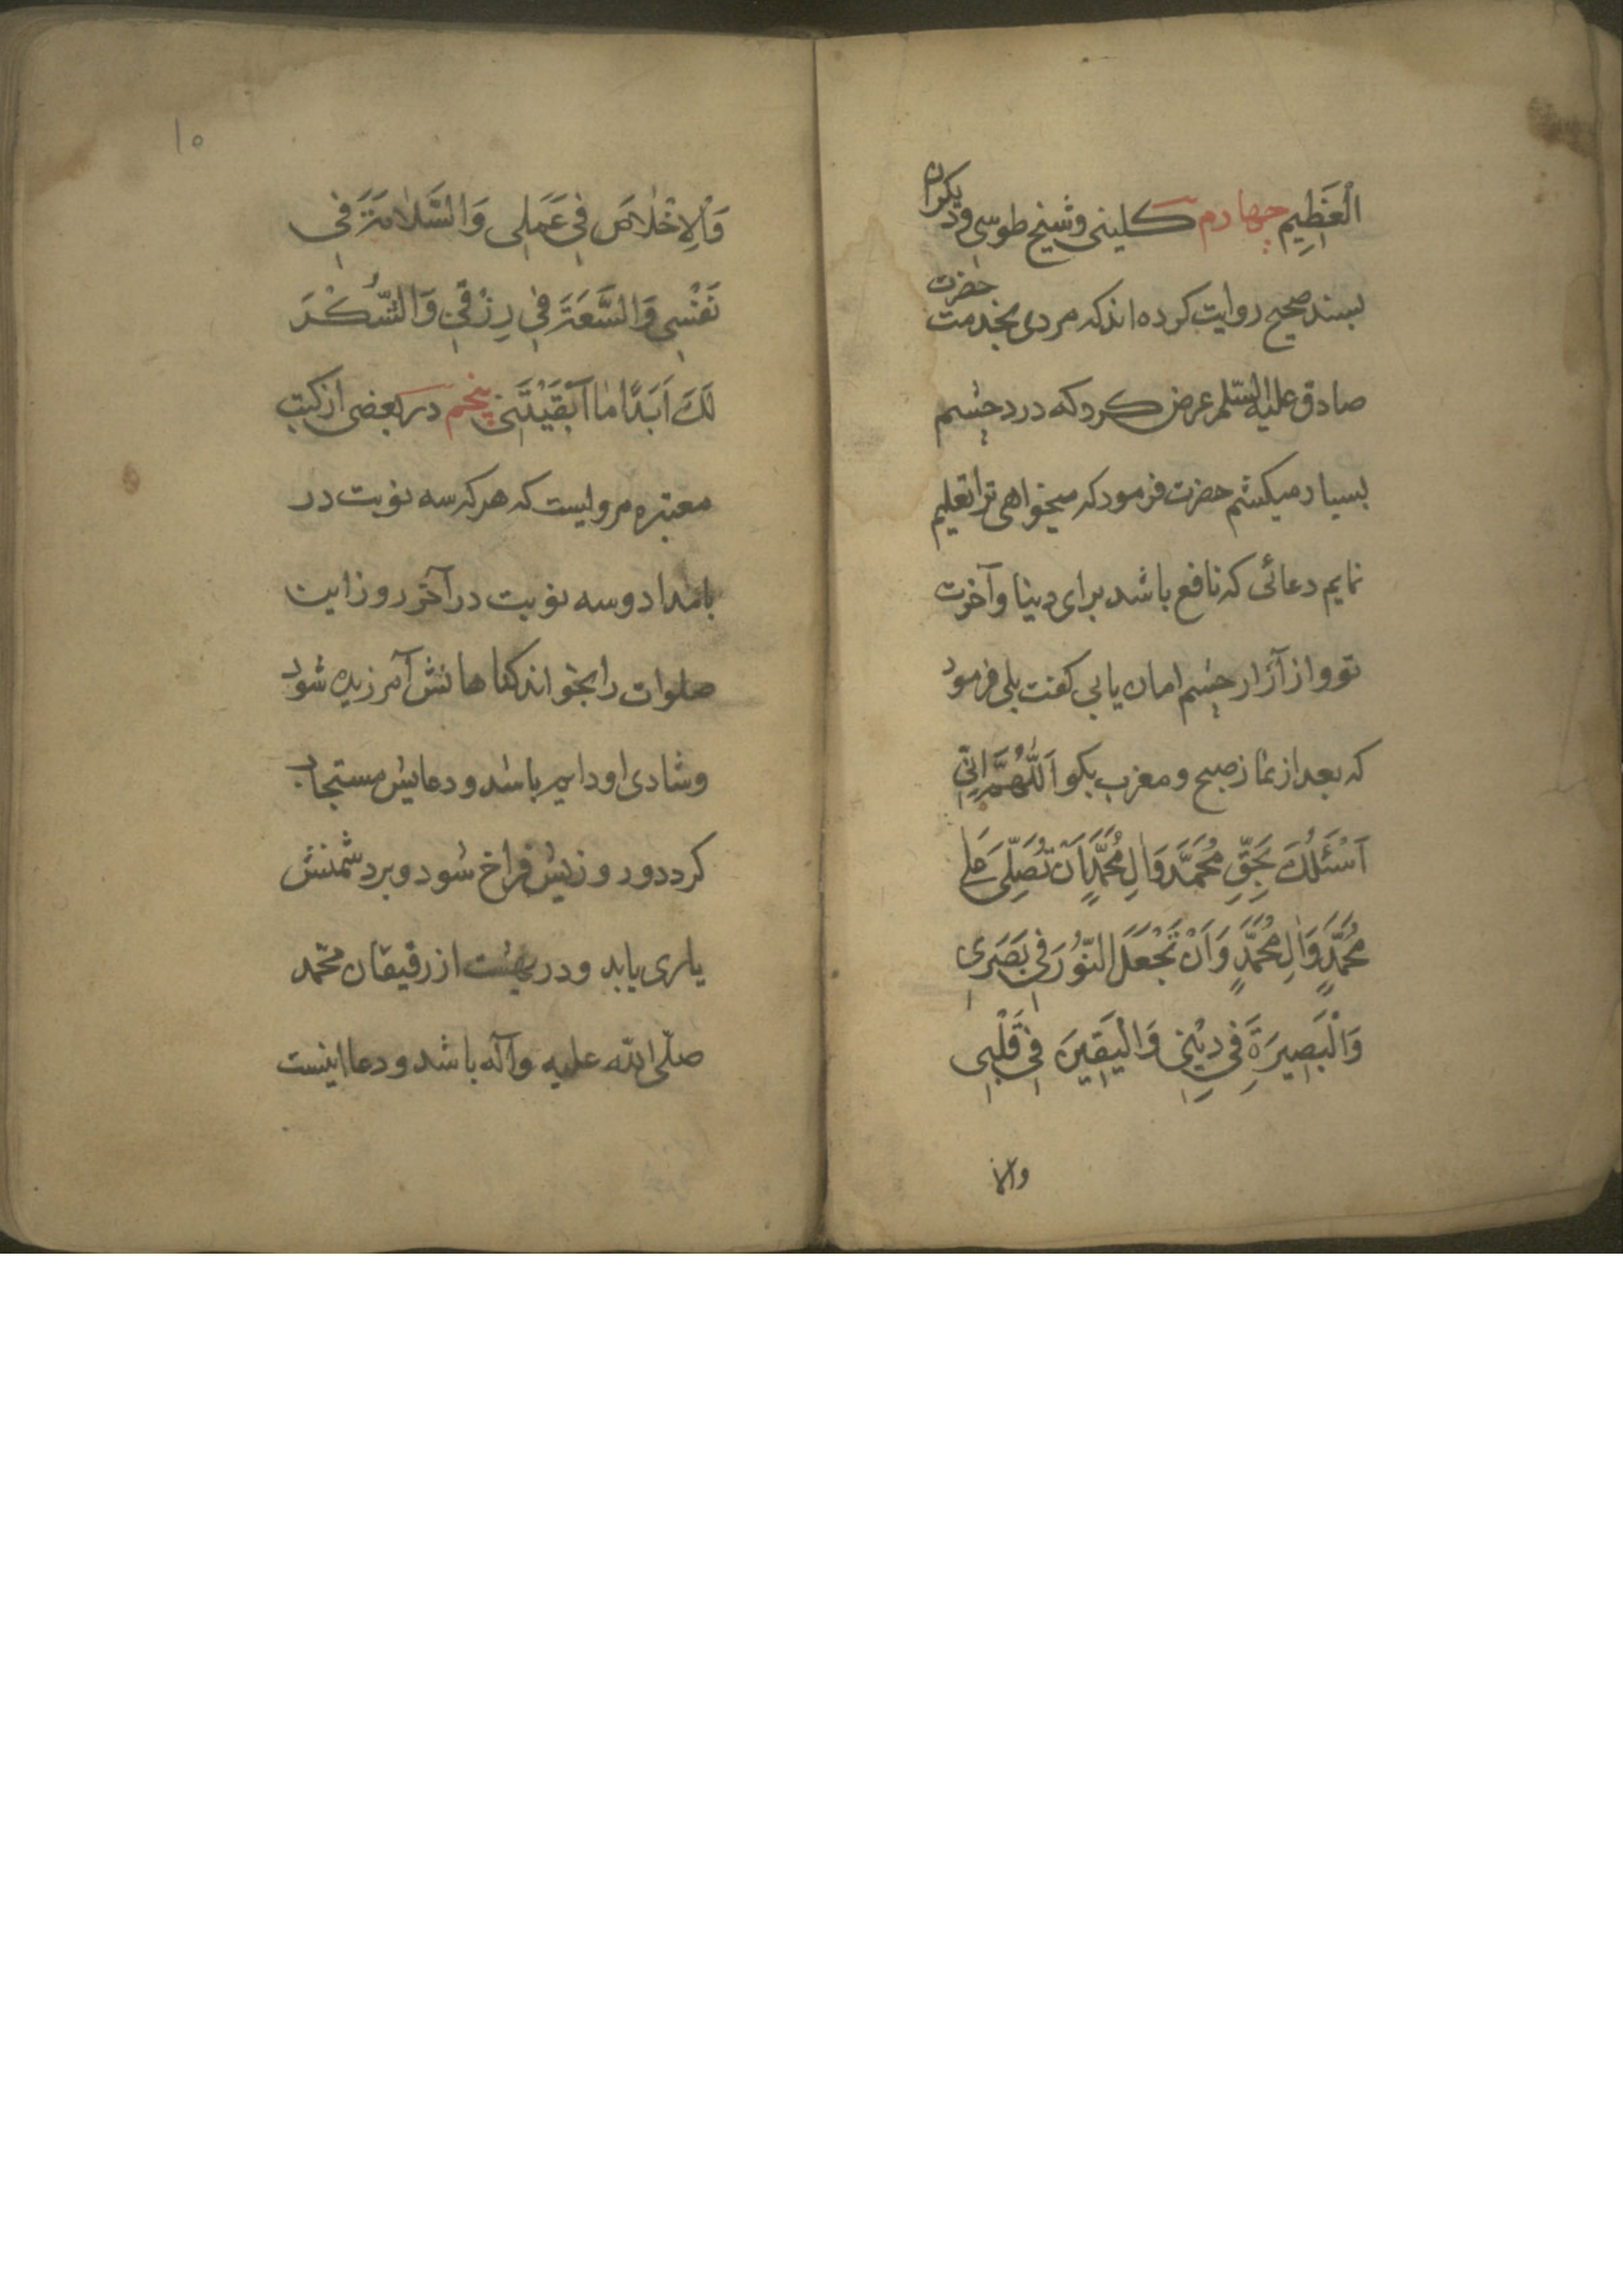 الْعَظِيمِ چهارم کلینی و شیخ طوسی و دیکران
بسند صحیح روایت کرده‌اند که مردی بخدمت حضرت
صادق علیه السّلم عرض کرد که درد چشم
بسیار میکشم حضرت فرمود که میخواهی ترا تعلیم
نمایم دعائی که نافع باشد برای دینا و آخرت
تو و از آزار چشم امان یابی کفت بلی فرمود
که بعد از نماز صبح و مغرب بکو اَللّٰهُمَّ اِنّی
اَسْئَلُكَ بِحَقِّ مُحَمَّدٍ وَاٰلِ مُحَمَّدٍ اَنْ تُصَلِّیَ عَلٰی
مُحَمَّدٍ وَاٰلِ مُحَمَّدٍ وَاَنْ تَجْعَلَ النُّورَ فِی بَصَرِی
وَالْبَصِیرَةَ فِی دِیْنِی وَالْیَقِینَ فِی قَلْبِی
والا
۱۵
وَالْاِخْلٰاصَ فِی عَمَلِی وَالسَّلٰامَةَ فِی
نَفْسِی وَالسَّعَةَ فِی رِزْقِی وَالشُّكْرَ
لَكَ اَبَدًا مٰا اَبْقَیْتَنِی پنجم در بعضی از کتب
معتبره مرویست که هر که سه نوبت در
بامداد و سه نوبت در آخر روز این
صلوات را بخواند کناهانش آمرزیده شود
و شادی او دایم باشد و دعایش مستجاب
کردد و روزیش فراخ شود و بر دشمنش
یاری یابد و در بهشت از رفیقان محمّد
صلّی الله علیه وآله باشد و دعا اینست